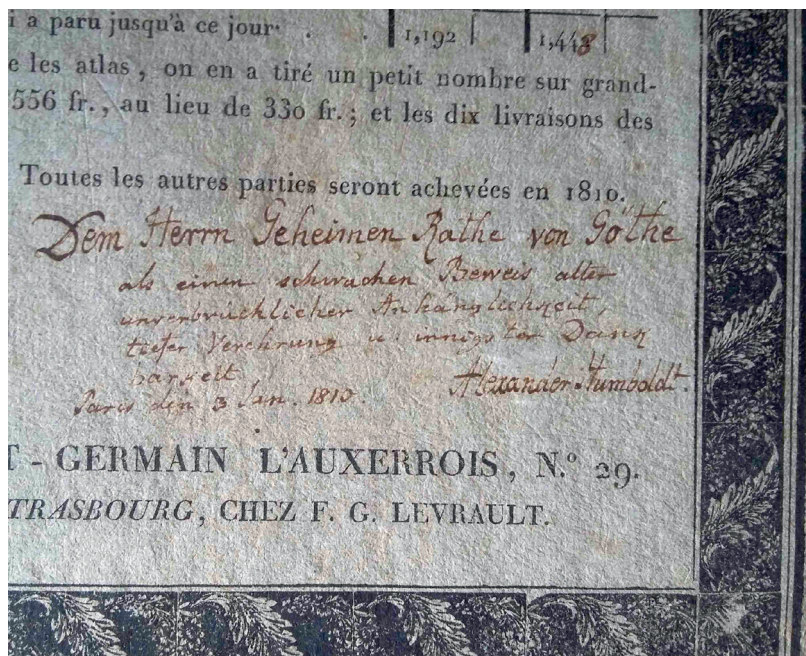 i a paru jusqu'à ce jour. . . 1,192 1,448
e les atlas, on en a tiré un petit nombre sur grand-
556 fr., au lieu de 330 fr.; et les dix livraisons des
Toutes les autres parties seront achevées en 1810.
Dem Herrn Geheimen Rathe von Göthe
als einen schwachen Beweis alter
unverbrüchlicher Anhänglichkeit,
tiefer Verehrung u. innigster Dank
barkeit
Alexander Humboldt.
Paris den 3 Jan. 1810.
T-GERMAIN L'AUXERROIS, N.° 29.
TRASBOURG, CHEZ F. G. LEVRAULT.